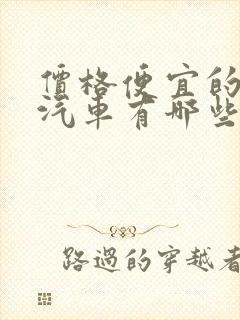 價格便宜的
汽車有哪些
路過的穿越者